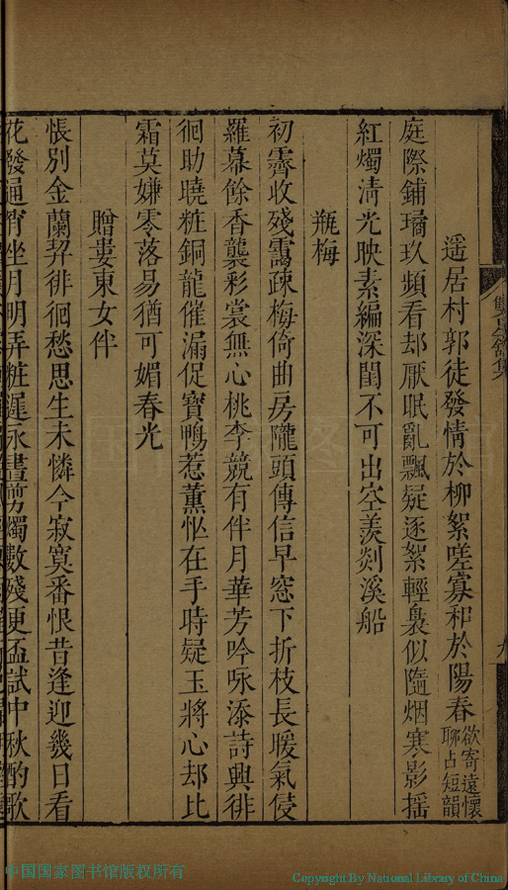 遥居村郭徒發情於柳絮嗟寡和於陽春欲寄遠懷聊占短韻
庭際鋪璚玖頻看却厭眠亂飄疑逐絮輕裊似隨烟寒影揺
紅燭淸光映素編深閨不可出空羨剡溪船
瓶梅
初霽收殘靄疎梅倚曲房隴頭傳信早窓下折枝長暖氣侵
羅幕餘香襲彩裳無心桃李競有伴月華芳吟咏添詩興徘
徊助曉粧銅龍催漏促寶鴨惹薰忙在手時疑玉將心却比
霜莫嫌零落易猶可媚春光
贈婁東女伴
悵別金蘭契徘徊愁思生未憐今寂寞番恨昔逢迎幾日看
花發通宵坐月明弄粧遲永晝剪燭數殘更盃試中秋酌歌
九
中国国家图书馆版权所有
Copyright By National Library of China